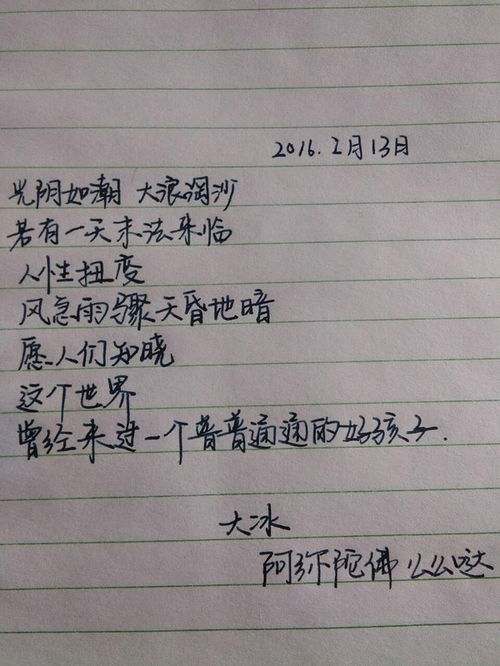 2016.2月13日
光阴如潮 大浪淘沙
若有一天末法来临
人性扭变
风急雨骤天昏地暗
愿人们知晓
这个世界
曾经来过一个普普通通的好孩子.
大冰
阿弥陀佛 么么哒